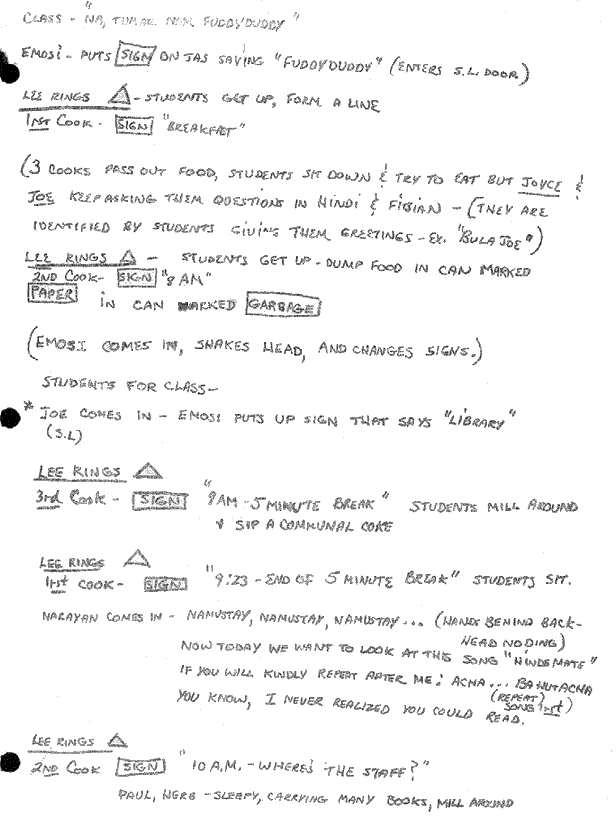 CLASS - "NA, TUMAR NAM FUDDYDUDDY"
EMOSI - PUTS SIGN ON JAS SAYING "FUDDYDUDDY" (ENTERS S.L. DOOR)
LEE RINGS △ - STUDENTS GET UP, FORM A LINE
1RST COOK - SIGN "BREAKFAST"
(3 COOKS PASS OUT FOOD, STUDENTS SIT DOWN & TRY TO EAT BUT JOYCE &
JOE KEEP ASKING THEM QUESTIONS IN HINDI & FIJIAN - (THEY ARE
IDENTIFIED BY STUDENTS GIVING THEM GREETINGS - EX. "BULA JOE")
LEE RINGS △ - STUDENTS GET UP - DUMP FOOD IN CAN MARKED
2ND COOK - SIGN "8 AM"
PAPER IN CAN MARKED GARBAGE
(EMOSI COMES IN, SHAKES HEAD, AND CHANGES SIGNS.)
STUDENTS FOR CLASS -
* JOE COMES IN - EMOSI PUTS UP SIGN THAT SAYS "LIBRARY"
(S.L)
LEE RINGS △
3rd COOK - SIGN "9AM - 5 MINUTE BREAK" STUDENTS MILL AROUND
& SIP A COMMUNAL COKE
LEE RINGS △
1rst COOK - SIGN "9:23 - END OF 5 MINUTE BREAK" STUDENTS SIT.
NARAYAN COMES IN - NAMUSTAY, NAMUSTAY, NAMUSTAY... (HANDS BEHIND BACK-
HEAD NODING)
NOW TODAY WE WANT TO LOOK AT THIS SONG "HINDEMATE"
IF YOU WILL KINDLY REPEAT AFTER ME: ACHA... BAHUTACHA
(REPEAT)
SONG 1rst)
YOU KNOW, I NEVER REALIZED YOU COULD READ.
LEE RINGS △
2ND COOK SIGN "10 A.M. - WHERE'S THE STAFF?"
PAUL, HERB - SLEEPY, CARRYING MANY BOOKS, MILL AROUND